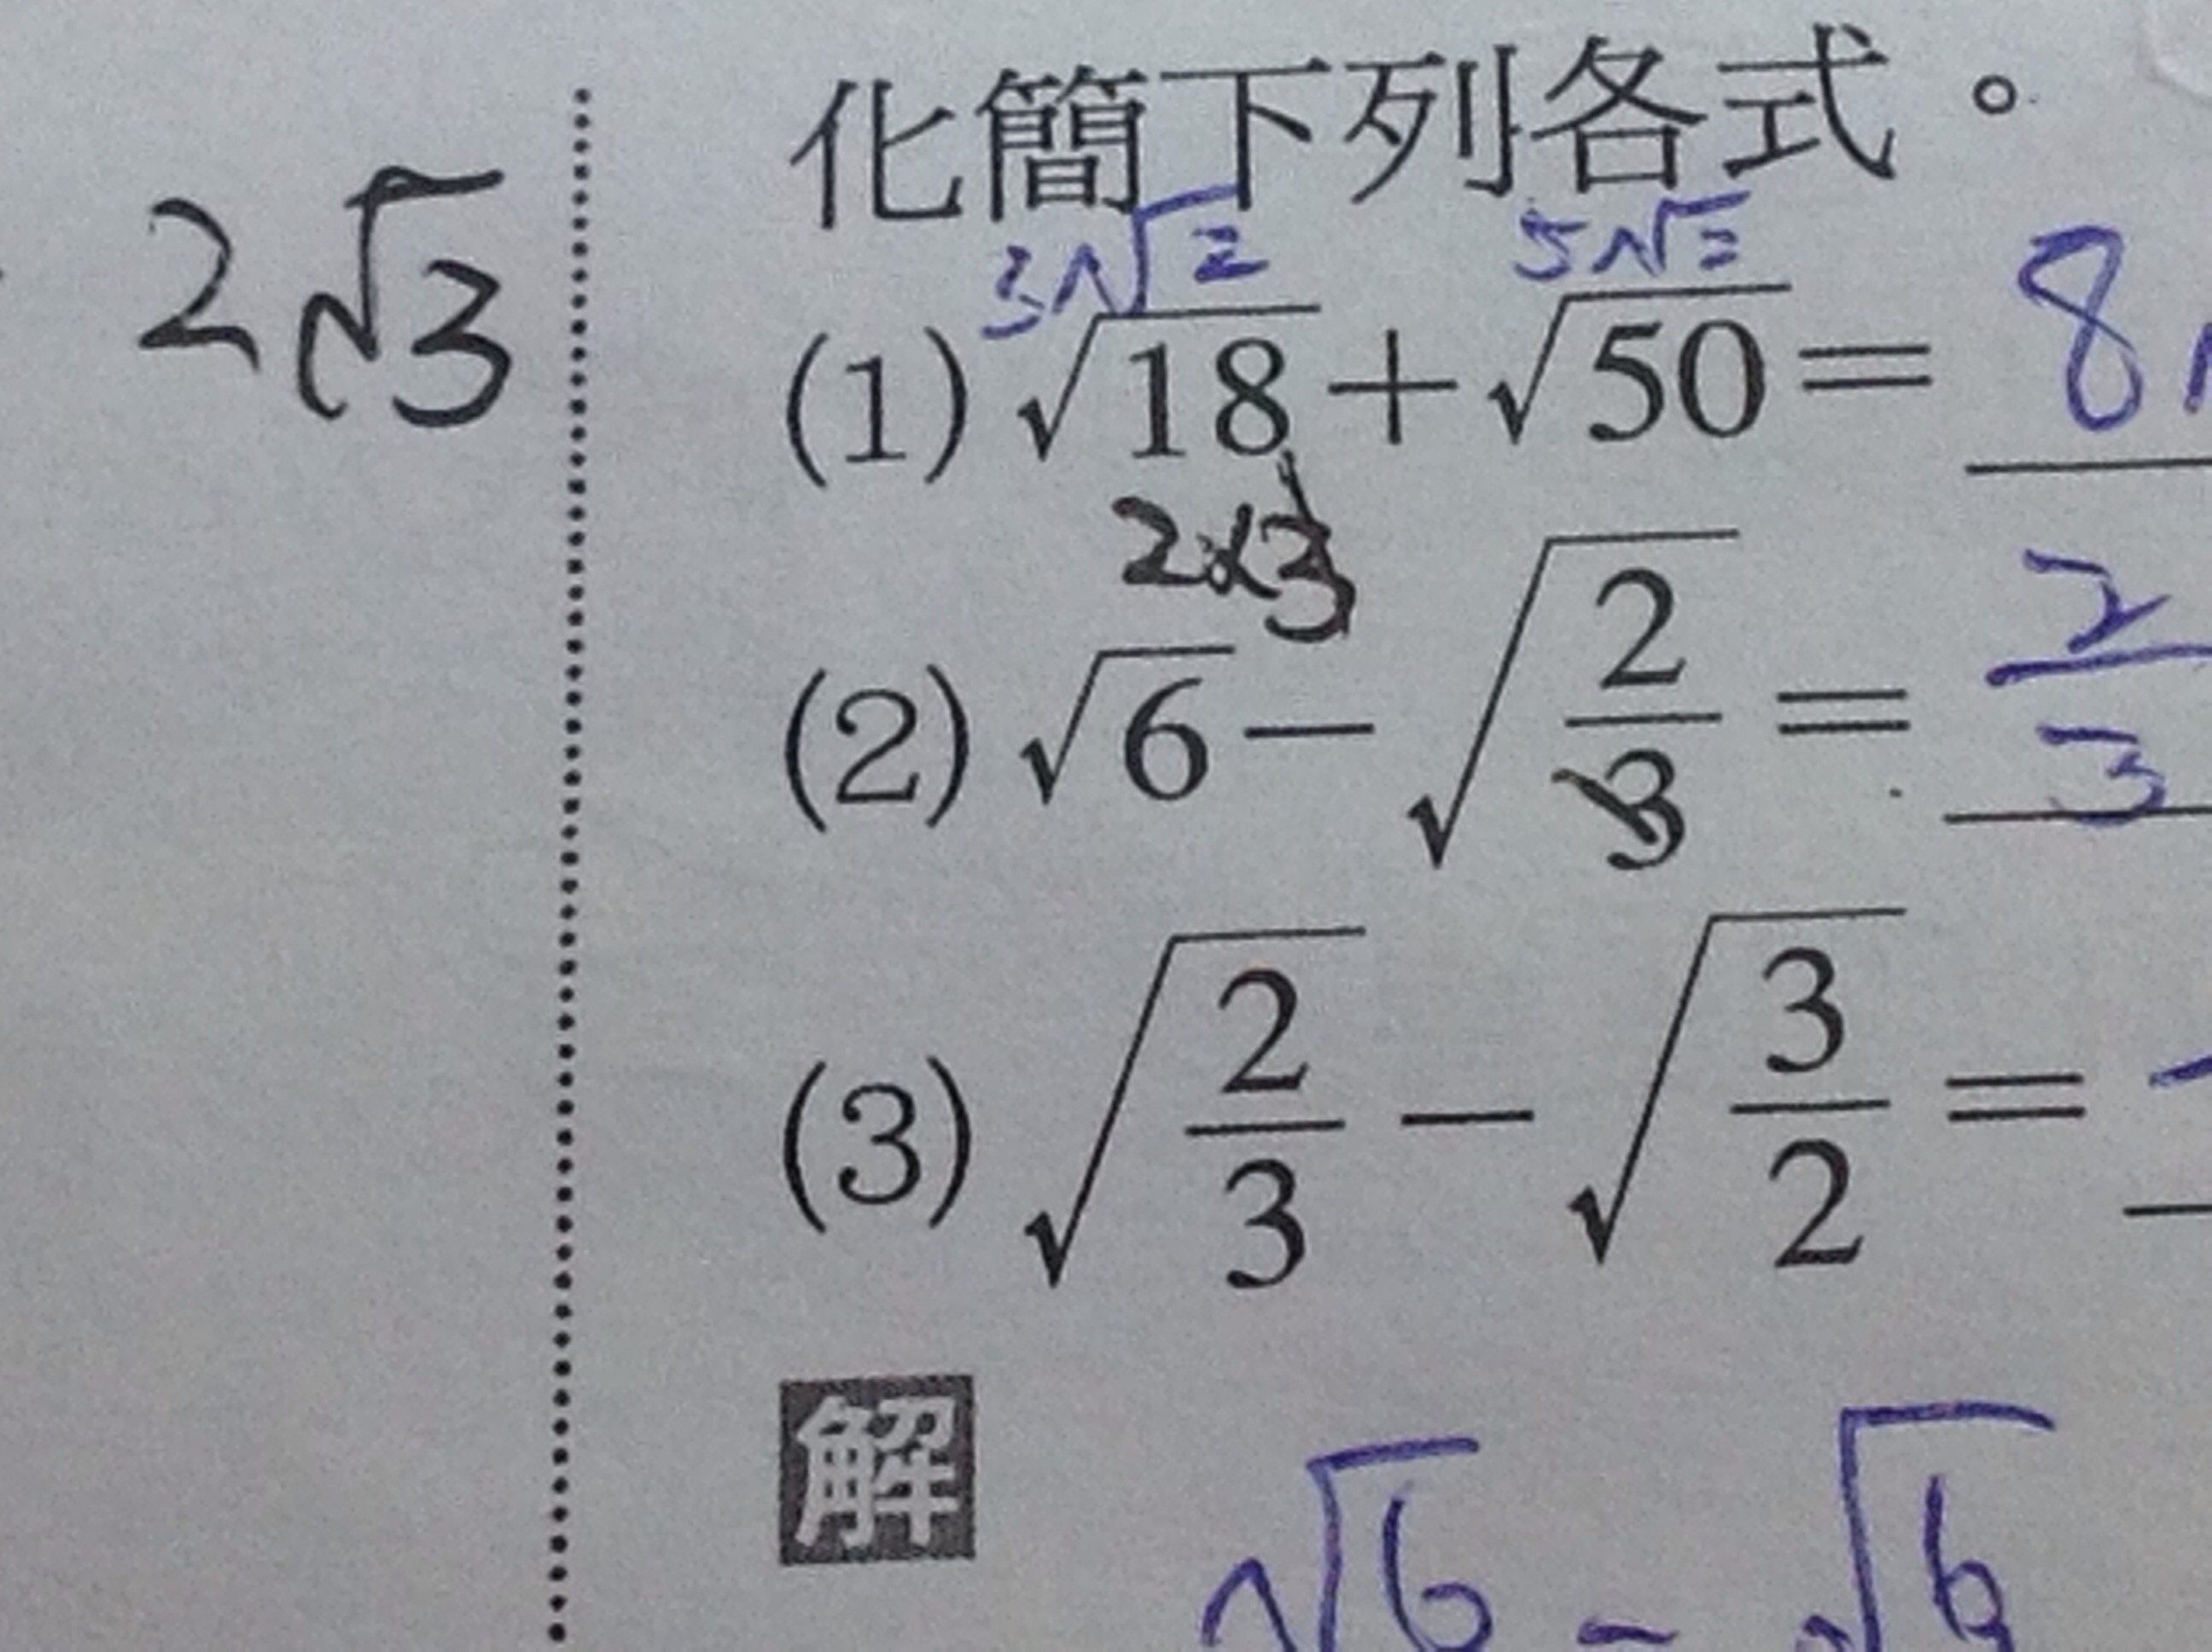 2√3
化簡下列各式。
3√2 5√2
(1) √18 + √50 = 8
2×3
(2) √6 − √(2/3) = 2/3
(3) √(2/3) − √(3/2) = −
解
√6 − √6